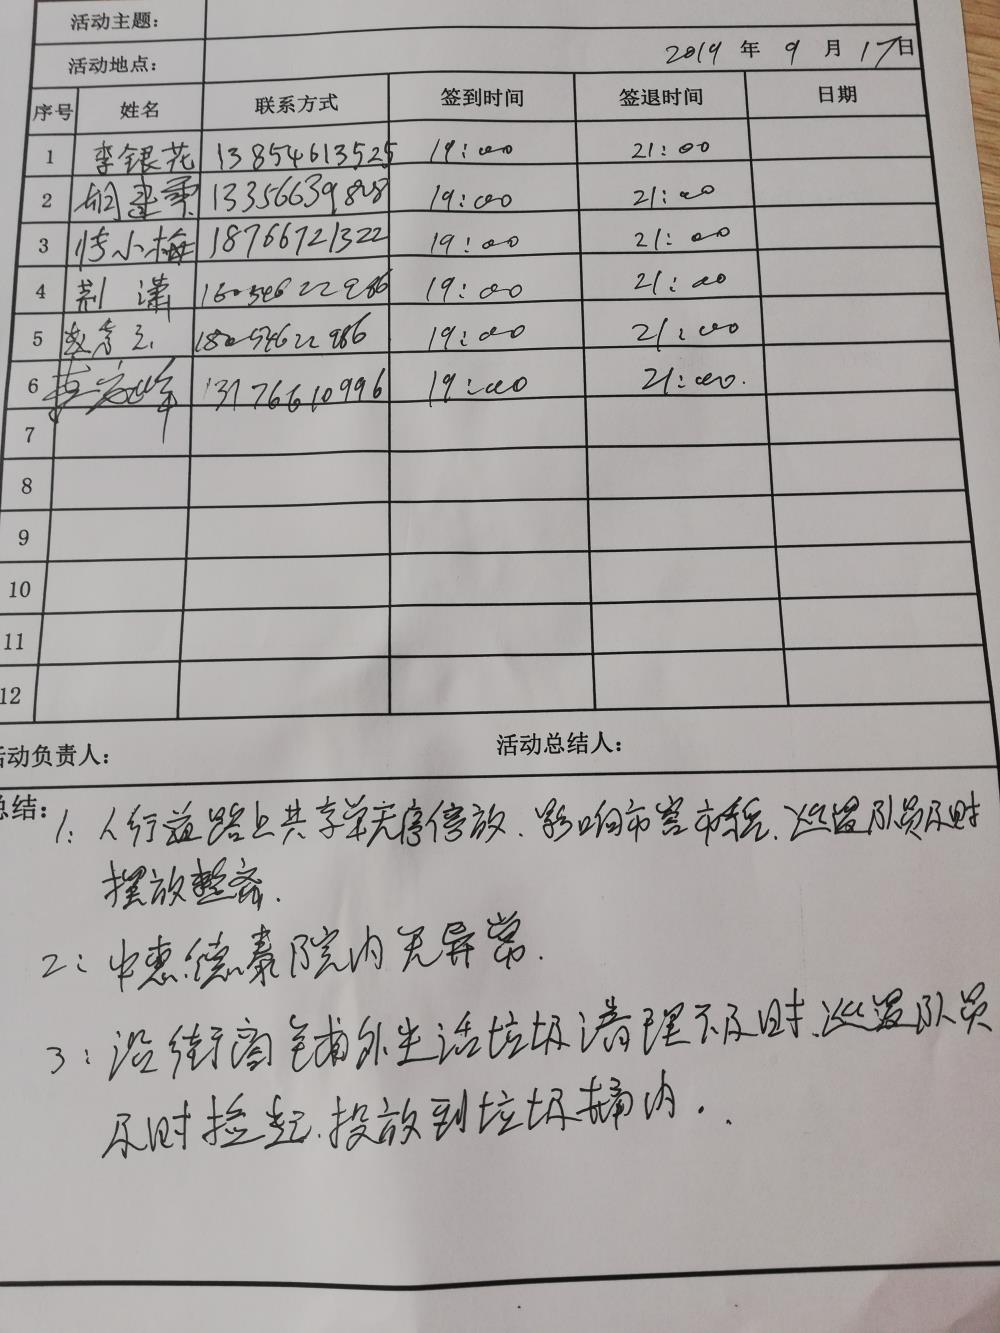 活动主题：
活动地点： 2019 年 9 月 17日
序号 姓名 联系方式 签到时间 签退时间 日期
1 李银花 13854613525 19:00 21:00
2 13356639828 19:00 21:00
3 小梅 18766721322 19:00 21:00
4 荆潇 19:00 21:00
5 18054622986 19:00 21:00
6 13176610996 19:00 21:00.
7
8
9
10
11
12
活动负责人： 活动总结人：
总结：1: 人行道路上共享单无序停放.影响市容市貌.巡逻队员及时
摆放整齐.
2: 中惠德泰院内无异常.
3: 沿街商铺外生活垃圾清理不及时.巡逻队员
及时捡起.投放到垃圾桶内.